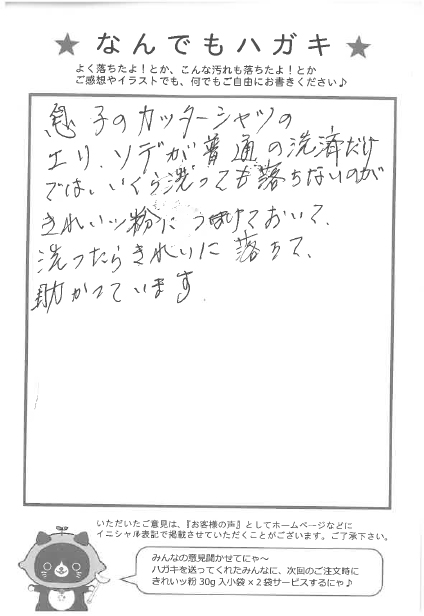 ★ なんでもハガキ ★
よく落ちたよ！とか、こんな汚れも落ちたよ！とか
ご感想やイラストでも、何でもご自由にお書きください♪
息子のカッターシャツの
エリ、ソデが普通の洗済だけ
では、いくら洗っても落ちないのが
きれいッ粉につけておいて、
洗ったらきれいに落ちて、
助かっています。
いただいたご意見は、『お客様の声』としてホームページなどに
イニシャル表記で掲載させていただくことがございます。ご了承下さい。
みんなの意見聞かせてにゃ～
ハガキを送ってくれたみんなに、次回のご注文時に
きれいッ粉 30g 入小袋×２袋サービスするにゃ♪